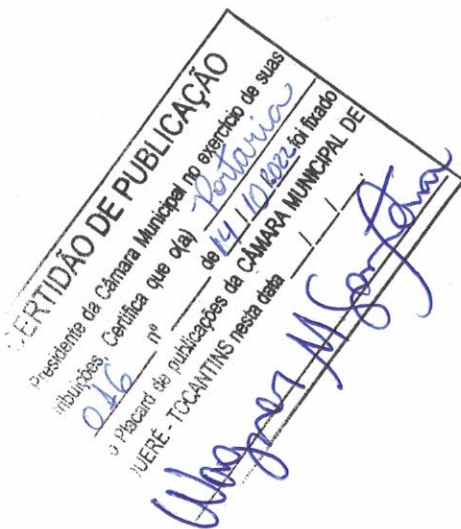 CERTIDÃO DE PUBLICAÇÃO
Presidente da Câmara Municipal no exercício de suas
ribuições, Certifica que o(a) Portaria
016 nº ____ de 14/10/2022 foi fixado
o Placard de publicações da CÂMARA MUNICIPAL DE
UERÉ - TOCANTINS nesta data __/__/__.
Wagner M